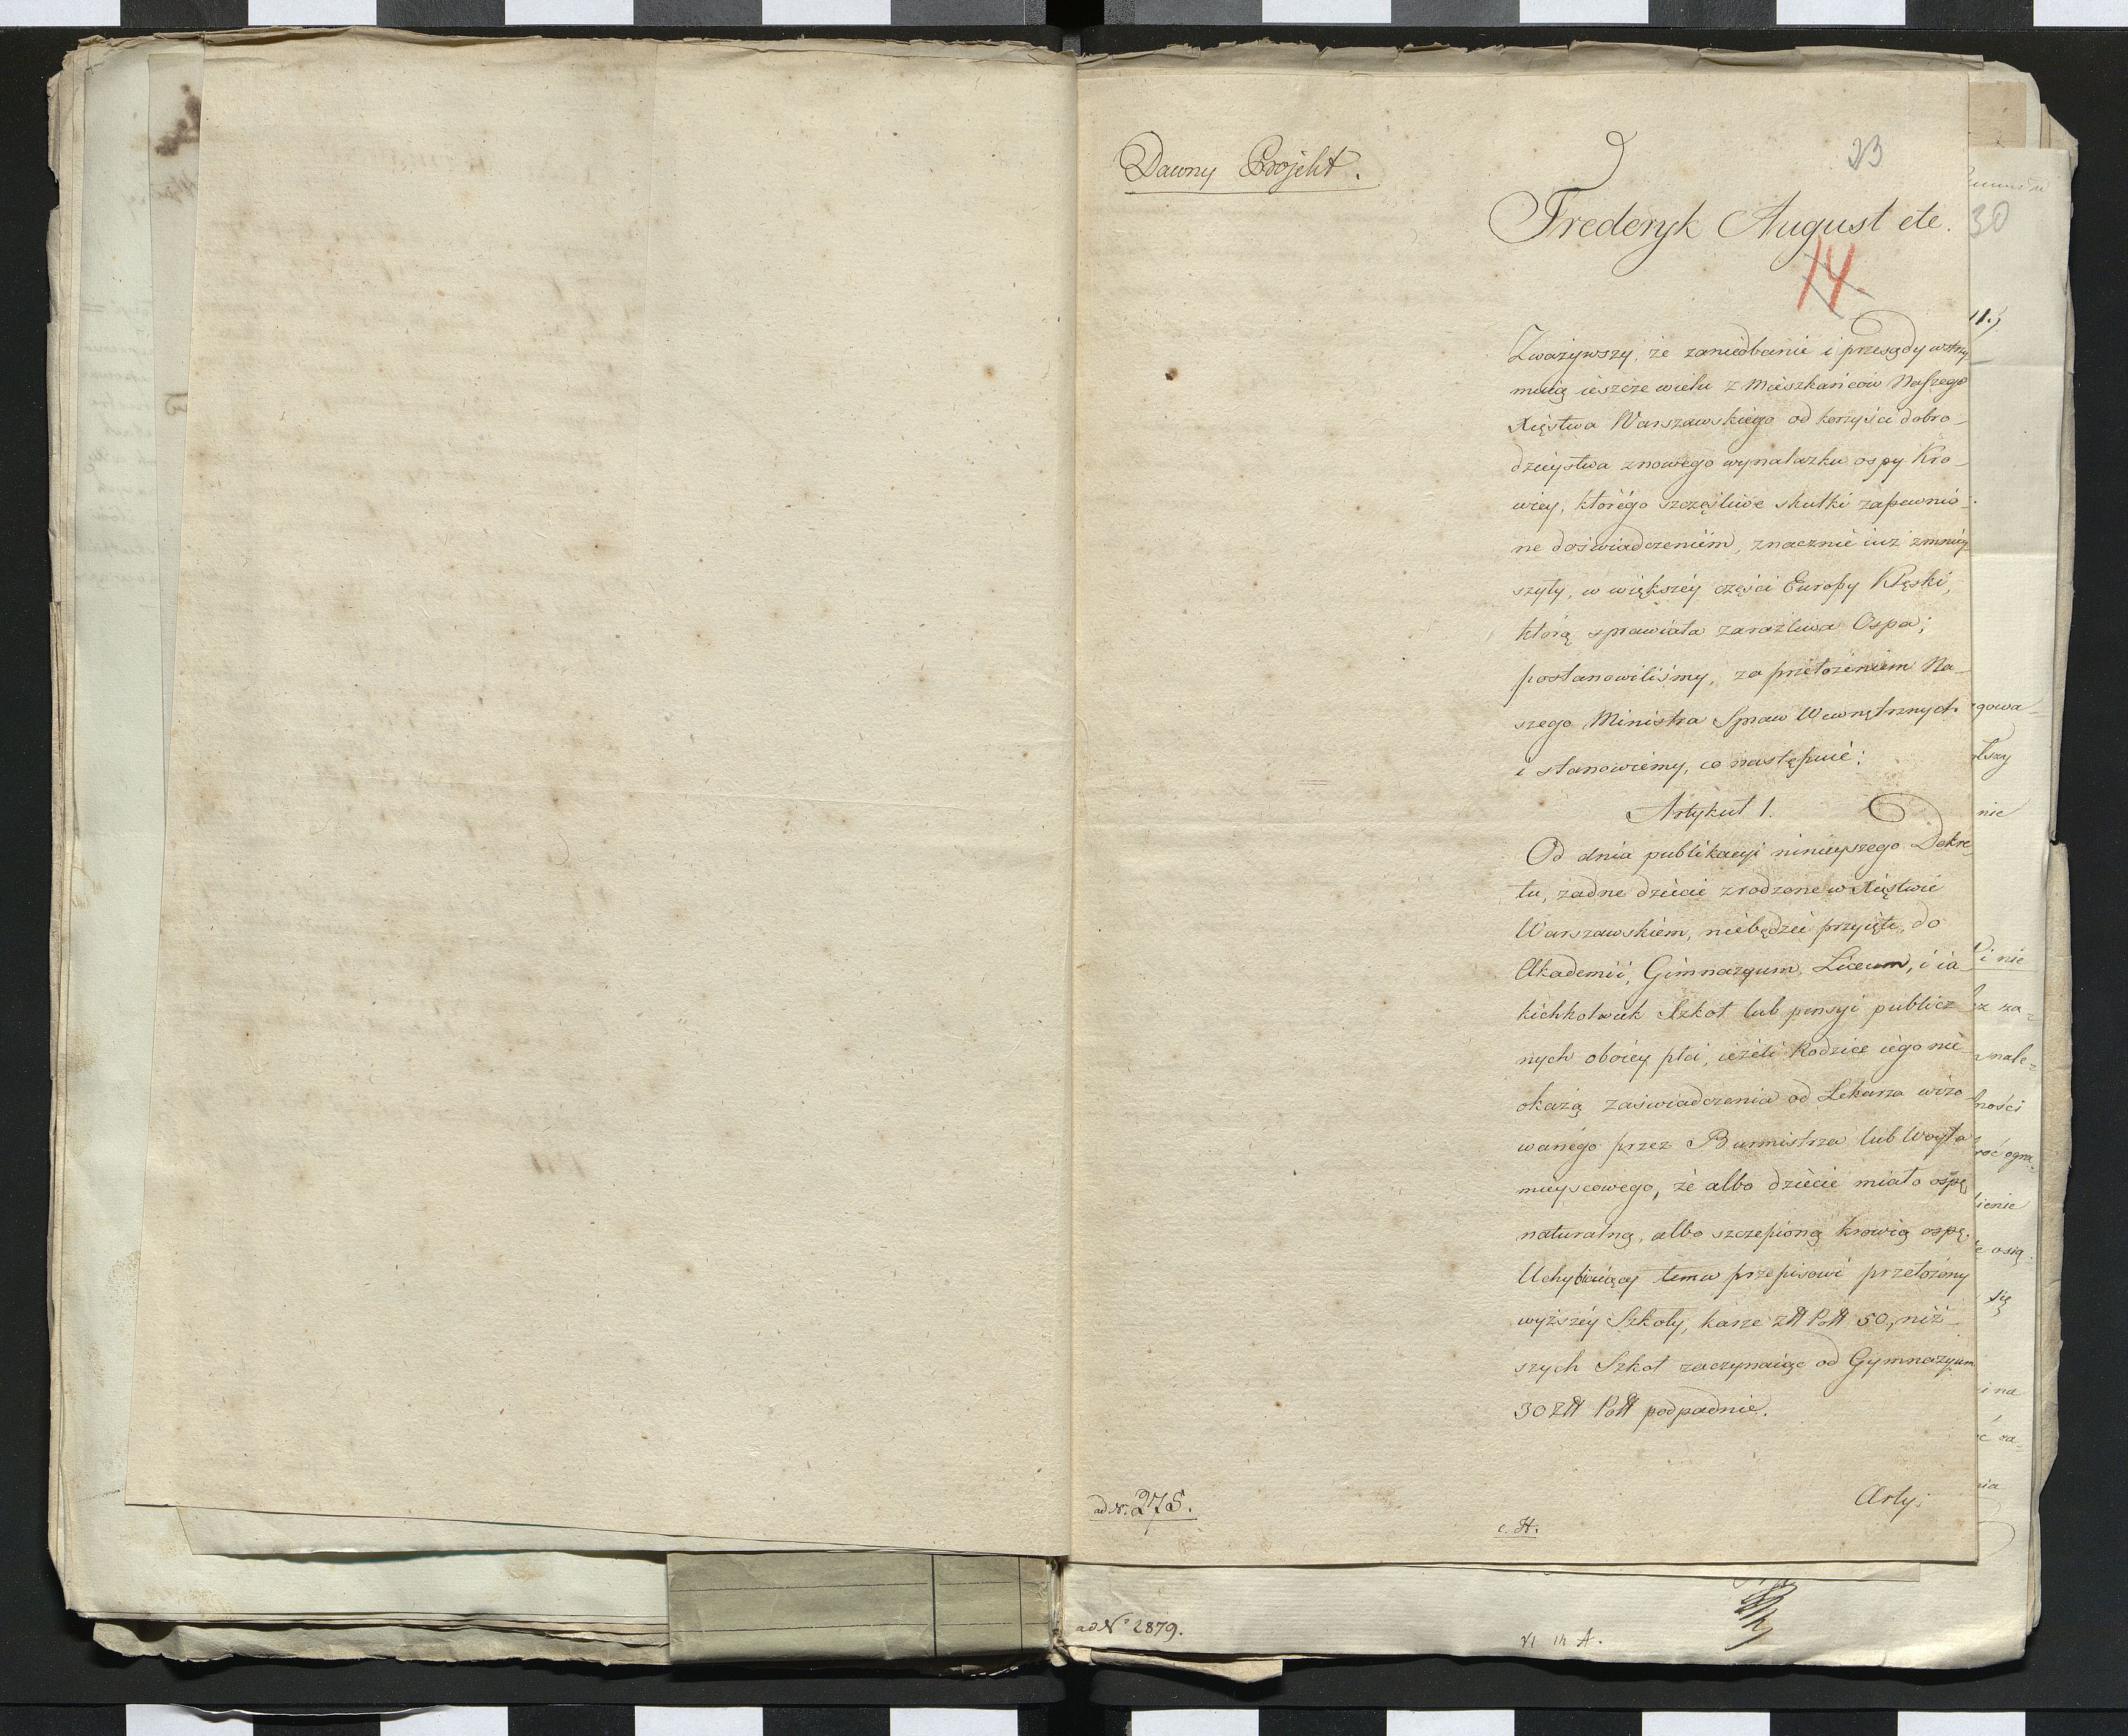 Dawny Projekt.
23
Frederyk August etc.
14.
Zważywszy, że zaniedbanie i przesądy wstrzy
muią ieszcze wielu z Mieszkańców Naszego
Xięstwa Warszawskiego od korzyści dobro-
dzieystwa znowego wynalazku ospy Kro-
wiey, którégo szczęśliwe skutki zapewnio-
ne doświadczeniem, znacznie iuż zmniey
szyły, w większéy części Europy Klęski,
którą sprawiała zaraźliwa Ospa;
postanowiliśmy, za przełożeniem Na-
szego Ministra Spraw Wewnętrznych
i stanowiemy, co następuie:
Artykuł 1.
Od dnia publikacyi ninieyszego Dekre
tu, żadne dziecie zrodzone w Xięstwie
Warszawskiem, niebędzie przyięte, do
Akademii, Gimnazyum, Liceum, i ia
kichkolwiek Szkoł lub pensyi publicz
nych oboiey płci, ieżeli Rodzice iego nie
okażą zaświadczenia od Lekarza wizo
wanégo przez Burmistrza lub Woyta
mieyscowego, że albo dziecie miało ospę
naturalną, albo szczepioną krowią ospę.
Uchybiaiący temu przepisowi przełożony
wyższéy Szkoły, karze Złł Poll 50, niż-
szych Szkoł zaczynaiąc od Gymnazyum
30 Złł Poll podpadnie.
Arty:
ad N: 275.
c. H.
ad N° 2879.
30
11.)
gowa-
nie
i nie
ności
ienie
się
i na